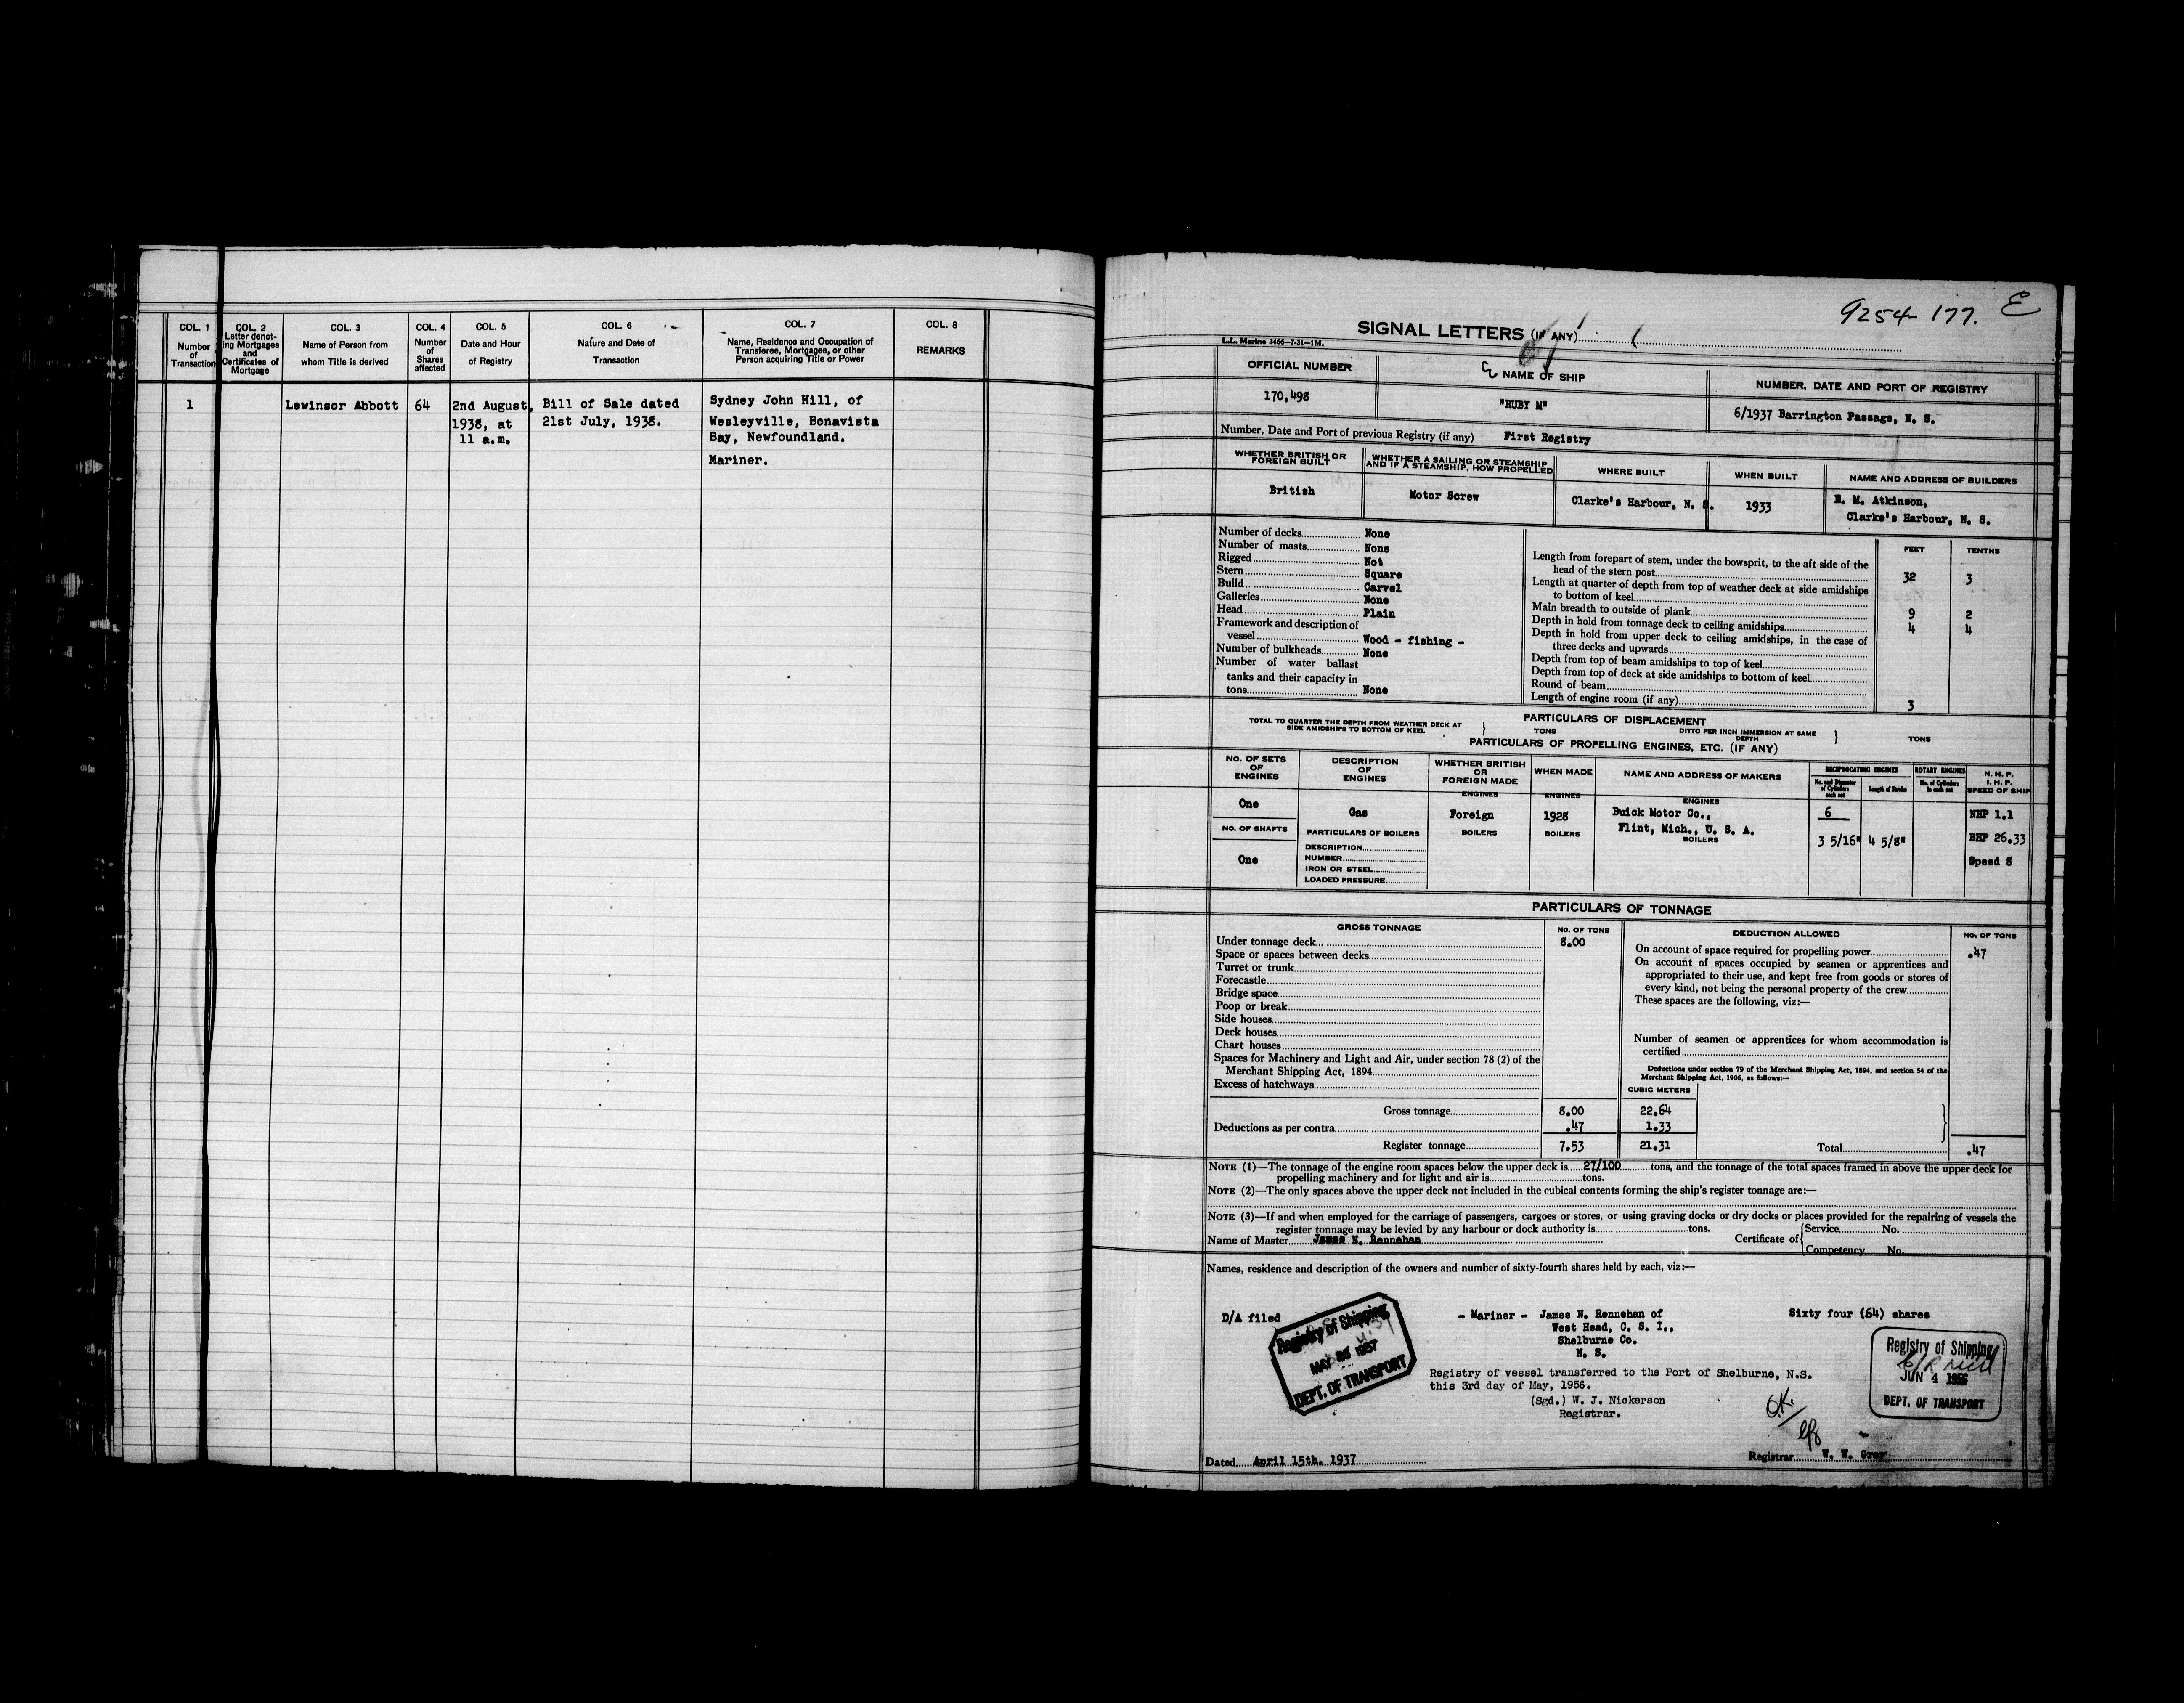 COL. 1
Number
of
Transaction
COL. 2
Letter denot-
ing Mortgages
and
Certificates of
Mortgage
COL. 3
Name of Person from
whom Title is derived
COL. 4
Number
of
Shares
affected
COL. 5
Date and Hour
of Registry
COL. 6
Nature and Date of
Transaction
COL. 7
Name, Residence and Occupation of
Transferee, Mortgagee, or other
Person acquiring Title or Power
COL. 8
REMARKS
1
Lewinsor Abbott
64
2nd August,
1938, at
11 a.m.
Bill of Sale dated
21st July, 1938.
Sydney John Hill, of
Wesleyville, Bonavista
Bay, Newfoundland.
Mariner.
9254-177. E
SIGNAL LETTERS (IF ANY)
L.L. Marine 3466—7-31—1M.
OFFICIAL NUMBER
170,498
NAME OF SHIP
"RUBY M"
NUMBER, DATE AND PORT OF REGISTRY
6/1937 Barrington Passage, N. S.
Number, Date and Port of previous Registry (if any) First Registry
WHETHER BRITISH OR
FOREIGN BUILT
British
WHETHER A SAILING OR STEAMSHIP
AND IF A STEAMSHIP, HOW PROPELLED
Motor Screw
WHERE BUILT
Clarke's Harbour, N. S.
WHEN BUILT
1933
NAME AND ADDRESS OF BUILDERS
E. M. Atkinson,
Clarke's Harbour, N. S.
Number of decks None
Number of masts None
Rigged Not
Stern Square
Build Carvel
Galleries None
Head Plain
Framework and description of
vessel Wood - fishing -
Number of bulkheads None
Number of water ballast
tanks and their capacity in
tons None
FEET TENTHS
Length from forepart of stem, under the bowsprit, to the aft side of the
head of the stern post 32 3
Length at quarter of depth from top of weather deck at side amidships
to bottom of keel
Main breadth to outside of plank 9 2
Depth in hold from tonnage deck to ceiling amidships 4 4
Depth in hold from upper deck to ceiling amidships, in the case of
three decks and upwards
Depth from top of beam amidships to top of keel
Depth from top of deck at side amidships to bottom of keel
Round of beam
Length of engine room (if any) 3
PARTICULARS OF DISPLACEMENT
TOTAL TO QUARTER THE DEPTH FROM WEATHER DECK AT
SIDE AMIDSHIPS TO BOTTOM OF KEEL } TONS
DITTO PER INCH IMMERSION AT SAME
DEPTH } TONS
PARTICULARS OF PROPELLING ENGINES, ETC. (IF ANY)
NO. OF SETS
OF
ENGINES
One
NO. OF SHAFTS
One
DESCRIPTION
OF
ENGINES
Gas
PARTICULARS OF BOILERS
DESCRIPTION
NUMBER
IRON OR STEEL
LOADED PRESSURE
WHETHER BRITISH
OR
FOREIGN MADE
ENGINES
Foreign
BOILERS
WHEN MADE
ENGINES
1928
BOILERS
NAME AND ADDRESS OF MAKERS
ENGINES
Buick Motor Co.,
Flint, Mich., U. S. A.
BOILERS
RECIPROCATING ENGINES
No. and Diameter
of Cylinders
each set
6
3 5/16"
Length of Stroke
4 5/8"
ROTARY ENGINES
No. of Cylinders
in each set
N. H. P.
I. H. P.
SPEED OF SHIP
NHP 1.1
BHP 26.33
Speed 8
PARTICULARS OF TONNAGE
GROSS TONNAGE
NO. OF TONS
Under tonnage deck 8.00
Space or spaces between decks
Turret or trunk
Forecastle
Bridge space
Poop or break
Side houses
Deck houses
Chart houses
Spaces for Machinery and Light and Air, under section 78 (2) of the
Merchant Shipping Act, 1894
Excess of hatchways
DEDUCTION ALLOWED
NO. OF TONS
On account of space required for propelling power .47
On account of spaces occupied by seamen or apprentices and
appropriated to their use, and kept free from goods or stores of
every kind, not being the personal property of the crew
These spaces are the following, viz:—
Number of seamen or apprentices for whom accommodation is
certified
Deductions under section 79 of the Merchant Shipping Act, 1894, and section 54 of the
Merchant Shipping Act, 1906, as follows:—
CUBIC METERS
Gross tonnage 8.00 22.64
Deductions as per contra .47 1.33
Register tonnage 7.53 21.31
Total .47
NOTE (1)—The tonnage of the engine room spaces below the upper deck is 27/100 tons, and the tonnage of the total spaces framed in above the upper deck for
propelling machinery and for light and air is tons.
NOTE (2)—The only spaces above the upper deck not included in the cubical contents forming the ship's register tonnage are:—
NOTE (3)—If and when employed for the carriage of passengers, cargoes or stores, or using graving docks or dry docks or places provided for the repairing of vessels the
register tonnage may be levied by any harbour or dock authority is tons.
Name of Master James N. Rennehan
Certificate of { Service No.
Competency No.
Names, residence and description of the owners and number of sixty-fourth shares held by each, viz:—
D/A filed
Registry of Shipping
MAY 26 1937
DEPT. OF TRANSPORT
- Mariner - James N. Rennehan of
West Head, C. S. I.,
Shelburne Co.
N. S.
Sixty four (64) shares
Registry of vessel transferred to the Port of Shelburne, N.S.
this 3rd day of May, 1956.
(Sgd.) W. J. Nickerson
Registrar.
OK
Registry of Shipping
JUN 4 1956
DEPT. OF TRANSPORT
Dated April 15th. 1937
Registrar W. W. Gray